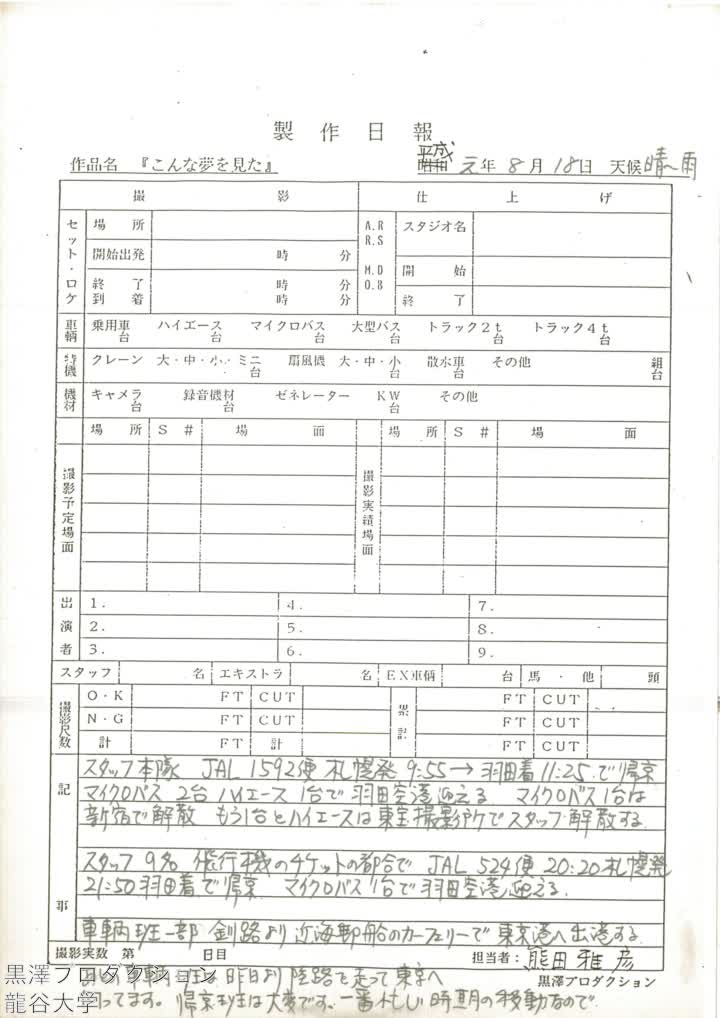 製作日報
作品名 『こんな夢を見た』 昭和 平成 元年 8月 18日 天候 晴〜雨
撮影 仕上げ
セット・ロケ 場所 A.R R.S スタジオ名
開始出発 時 分
M.D O.B 開始
終了 時 分
到着 時 分 終了
車輌 乗用車 台 ハイエース 台 マイクロバス 台 大型バス 台 トラック2t 台 トラック4t 台
特機 クレーン 大・中・小・ミニ 台 扇風機 大・中・小 台 散水車 台 その他 組 台
機材 キャメラ 台 録音機材 台 ゼネレーター KW 台 その他
撮影予定場面 場所 S# 場面 撮影実績場面 場所 S# 場面
出演者 1. 4. 7.
2. 5. 8.
3. 6. 9.
スタッフ 名 エキストラ 名 EX車輌 台 馬・他 頭
撮影尺数 O・K FT CUT 累計 FT CUT
N・G FT CUT FT CUT
計 FT 計 FT CUT
記事
スタッフ本隊 JAL 1592便 札幌発 9:55→羽田着11:25で帰京
マイクロバス 2台 ハイエース 1台で羽田空港迎える マイクロバス1台は
新宿で解散 もう1台とハイエースは東宝撮影所でスタッフ解散する
スタッフ9名 飛行機のチケットの都合で JAL 524便 20:20札幌発
21:50羽田着で帰京 マイクロバス1台で羽田空港迎える.
車輌班一部 釧路より近海郵船のカーフェリーで東京港へ出港する
撮影実数 第 日目 担当者: 熊田雅彦
黒澤プロダクション
昨日より陸路を走って東京へ
ってます. 帰京班は大変です、一番忙しい時期の移動なので.
黒澤プロダクション
龍谷大学